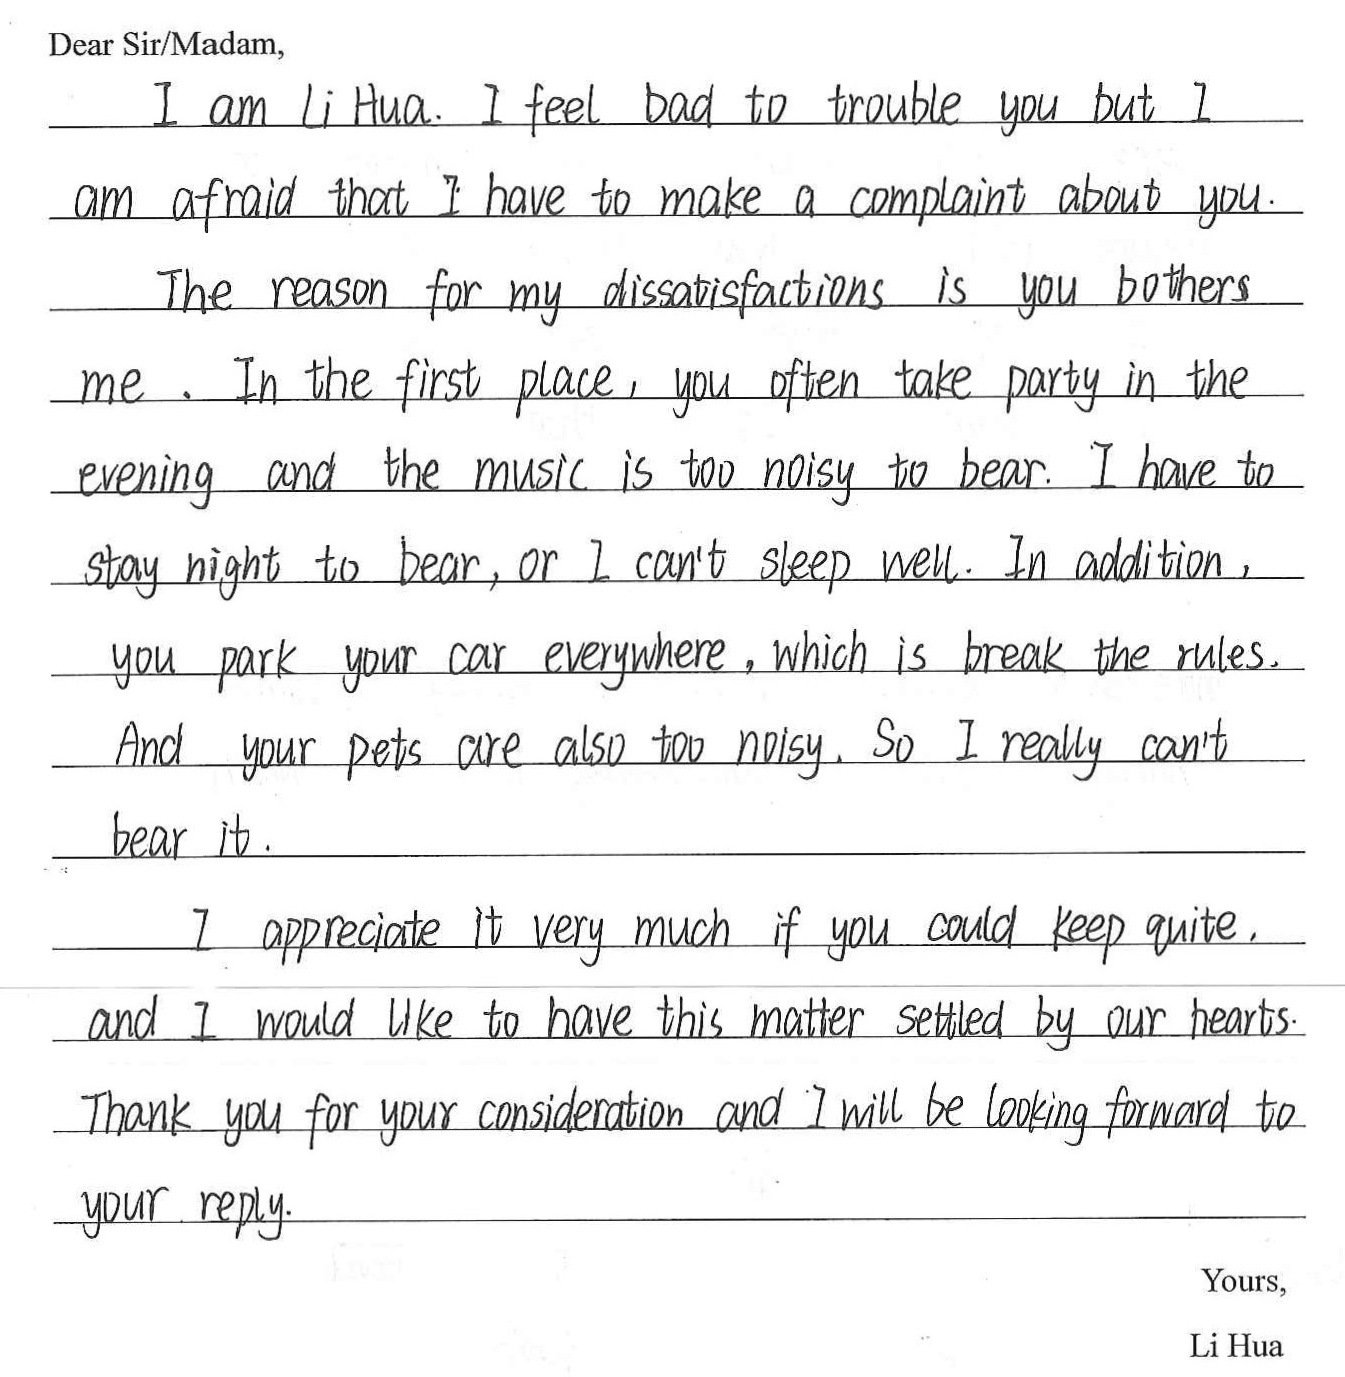 Dear Sir/Madam,
I am Li Hua. I feel bad to trouble you but I
am afraid that I have to make a complaint about you.
The reason for my dissatisfactions is you bothers
me. In the first place, you often take party in the
evening and the music is too noisy to bear. I have to
stay night to bear, or I can't sleep well. In addition,
you park your car everywhere, which is break the rules.
And your pets are also too noisy. So I really can't
bear it.
I appreciate it very much if you could keep quite,
and I would like to have this matter settled by our hearts.
Thank you for your consideration and I will be looking forward to
your reply.
Yours,
Li Hua